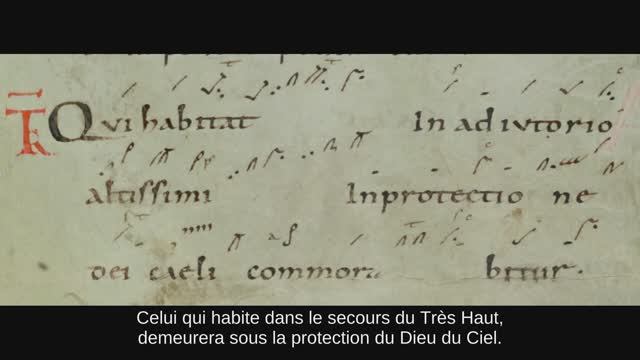 TR Qui habitat In adiutorio
altissimi In protectio ne
dei caeli commora bitur.
Celui qui habite dans le secours du Très Haut,
demeurera sous la protection du Dieu du Ciel.